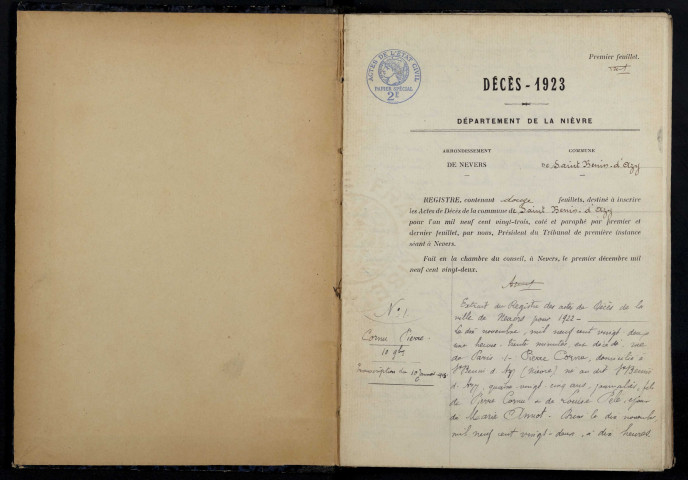 Premier feuillet.
ACTES DE L'ÉTAT CIVIL
PAPIER SPÉCIAL
2F
DÉCÈS - 1923
DÉPARTEMENT DE LA NIÈVRE
ARRONDISSEMENT
DE NEVERS
COMMUNE
de Saint Benin-d'Azy
REGISTRE, contenant douze feuillets, destiné à inscrire
les Actes de Décès de la commune de Saint Benin-d'Azy
pour l'an mil neuf cent vingt-trois, coté et paraphé par premier et
dernier feuillet, par nous, Président du Tribunal de première instance
séant à Nevers.
Fait en la chambre du conseil, à Nevers, le premier décembre mil
neuf cent vingt-deux.
N° 1
Cornu Pierre
Transcription du janvier
Extrait du Registre des actes de Décès de la
ville de Nevers pour 1922
Le dix novembre, mil neuf cent vingt deux
heures trente minutes, est décédé, rue
de Paris Pierre Cornu, domicilié à
St Benin d'Azy (Nièvre) né au dit St Benin
d'Azy, quatre vingt cinq ans, journalier, fils
de Pierre Cornu et de Louise époux
de Marie dix novembre
mil neuf cent vingt-deux, à dix heures